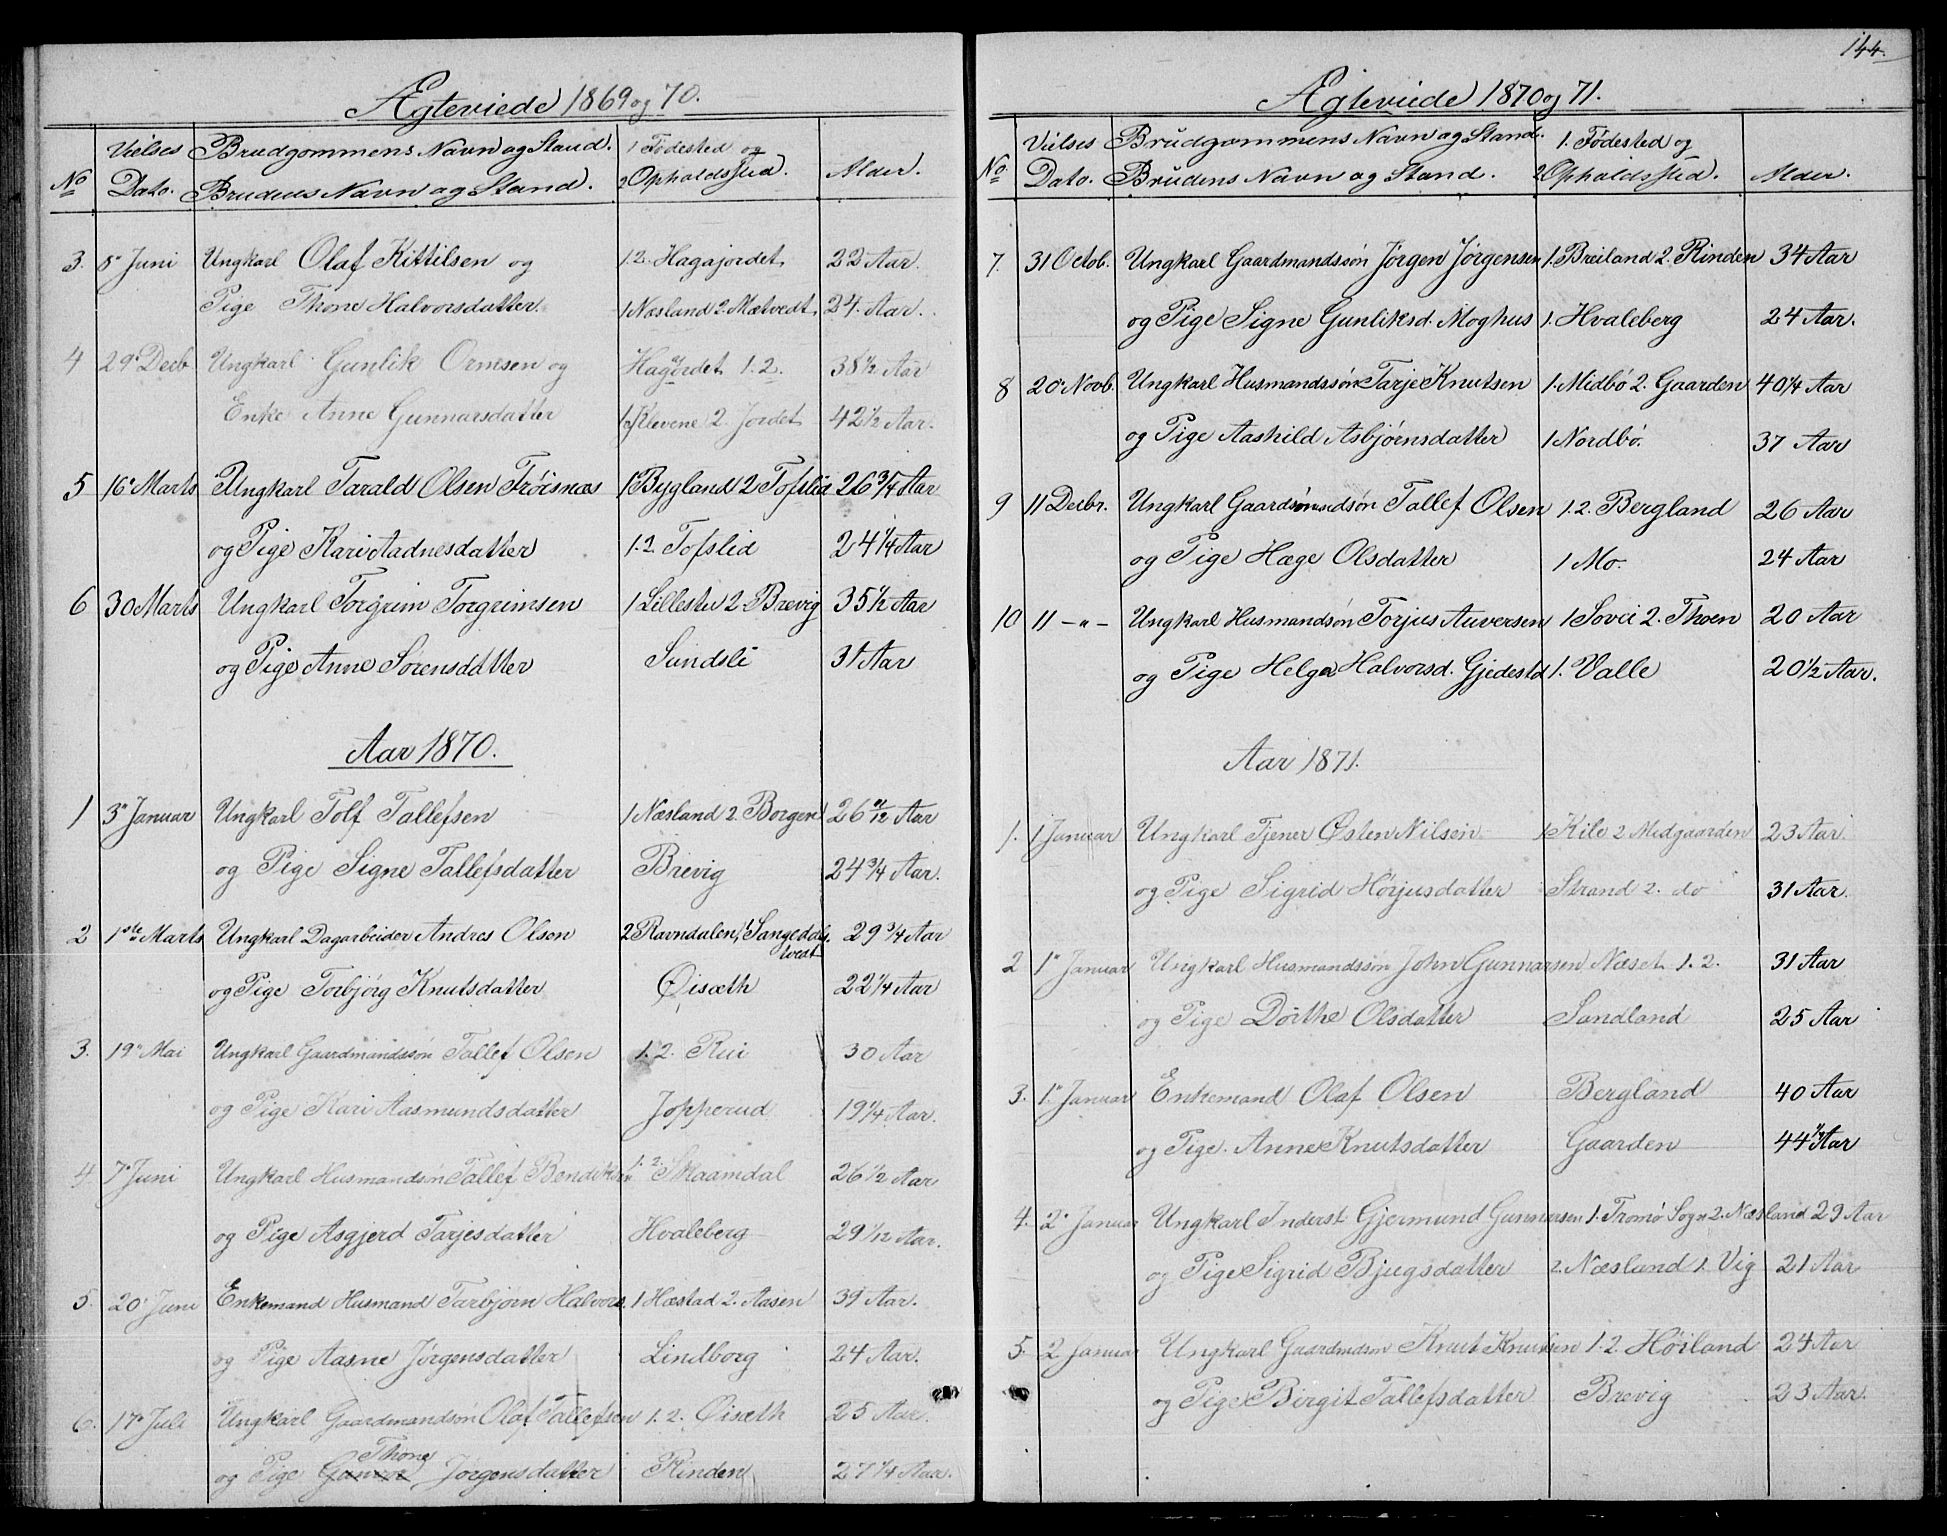 Ægteviede 1869 og 70.
No Vielses Dato. Brudgommens Navn og Stand. Brudens Navn og Stand. 1 Fødested og 2 Opholdssted. Alder.
3. 5te Juni Ungkarl Olaf Kittilsen og 1.2. Hagajordet 22 Aar.
Pige Thone Halvorsdatter. 1 Næsland 2. Mætvedt 24 Aar.
4 29de Decb. Ungkarl Gunlik Ormsen og Hagejordet 1.2. 38 1/2 Aar
Enke Anne Gunnarsdatter 1 Klevene 2. Jordet 42 1/2 Aar.
5 16de Marts Ungkarl Tarald Olsen Trøisnæs 1 Bygland 2 Tofslid 26 3/4 Aar
og Pige Kari Aadnesdatter 1.2. Tofslid 24 1/4 Aar
6 30 Marts Ungkarl Torgrim Torgrimsen 1 Lillestev 2 Brevig 35 1/2 Aar
og Pige Anne Sørensdatter Sundsli 31 Aar
Aar 1870.
1 3die Januar Ungkarl Tolf Tallefsen 1 Næsland 2. Borgen 26 11/12 Aar
og Pige Signe Tallefsdatter Brevig 24 3/4 Aar.
2 1ste Marts Ungkarl Dagarbeider Andres Olsen 2 Ravndalen, 1 Sangedals- 29 3/4 Aar
tvedt
og Pige Torbjørg Knutsdatter Øisæth 22 1/4 Aar
3. 19de Mai Ungkarl Gaardmandssøn Tallef Olsen 1. 2. Rui 30 Aar
og Pige Kari Aasmundsdatter Jopperud 19 1/4 Aar.
4 7de Juni Ungkarl Husmandsøn Tallef Bendiksen 1. 2. Skaamdal 26 1/2 Aar
og Pige Asgjerd Tarjesdatter Hvaleberg 29 1/12 Aar.
5. 20de Juni Enkemand Husmand Tarbjørn Halvors. 1 Hæstad 2. Aasen 39 Aar.
og Pige Aasne Jørgensdatter Lindborg 24 Aar.
6. 17de Juli Ungkarl Gaardmandsøn Olaf Tallefsen 1. 2. Øisæth 25 Aar.
Thone
og Pige Gunvor Jørgensdatter Rinden 27 1/4 Aar.
144.
Ægteviede 1870 og 71.
No. Vielses Dato. Brudgommens Navn og Stand. Brudens Navn og Stand. 1. Fødested og 2 Opholdssted. Alder.
7. 31 Octob. Ungkarl Gaardmandssøn Jørgen Jørgensen 1. Breiland 2. Rinden 34 Aar
og Pige Signe Gunliksd. Moghus 1. Hvaleberg 24 Aar.
8 20de Novb. Ungkarl Husmandssøn Tarje Knutsen 1. Midbö 2. Gaarden 40 1/4 Aar
og Pige Aashild Asbjørnsdatter 1 Nordbö. 37 Aar
9 11 Decbr. Ungkarl Gaardsmandsøn Tallef Olsen 1. 2. Bergland 26 Aar
og Pige Hæge Olsdatter 1 Mo. 24 Aar
10 11 -"- Ungkarl Husmandsøn Torjus Auversen 1 Sovei 2. Thoen 20 Aar
og Pige Helga Halvorsd. Gjedestd 1. Valle 20 1/2 Aar.
Aar 1871.
1. 1 Januar Ungkarl Tjener Østen Nilsen 1 Kile 2 Midgaarden 23 Aar
og Pige Sigrid Hørjusdatter Strand 2. do 31 Aar.
2 1ste Januar Ungkarl Husmandssøn John Gunnarsen Næset 1. 2. 31 Aar
og Pige Dörthe Olsdatter Sandland 25 Aar
3. 1ste Januar Enkemand Olaf Olsen Bergland 40 Aar
og Pige. Anne Knutsdatter Gaarden 44 1/4 Aar
4. 2den Januar Ungkarl Inderst Gjermund Gunnarsen 1. Tromø Sogn 2. Næsland 29 Aar
og Pige Sigrid Bjugsdatter 2. Næsland 1. Vig 21 Aar
5. 2 Januar Ungkarl Gaardmdsøn Knut Knutsen 1. 2. Høiland 24 Aar
og Pige Birgit Tallefsdatter Brevig 23 Aar.